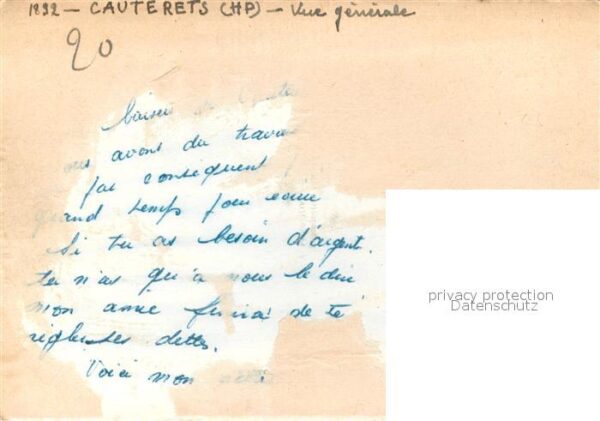 1892 - CAUTERETS (HP) - Vue générale
20
baiser
avons du travail
par conséquent
grand temps pour
Si tu as besoin d'argent.
tu n'as qu'à nous le dire
mon amie finira de te
régler ses dettes.
Voici mon
privacy protection
Datenschutz